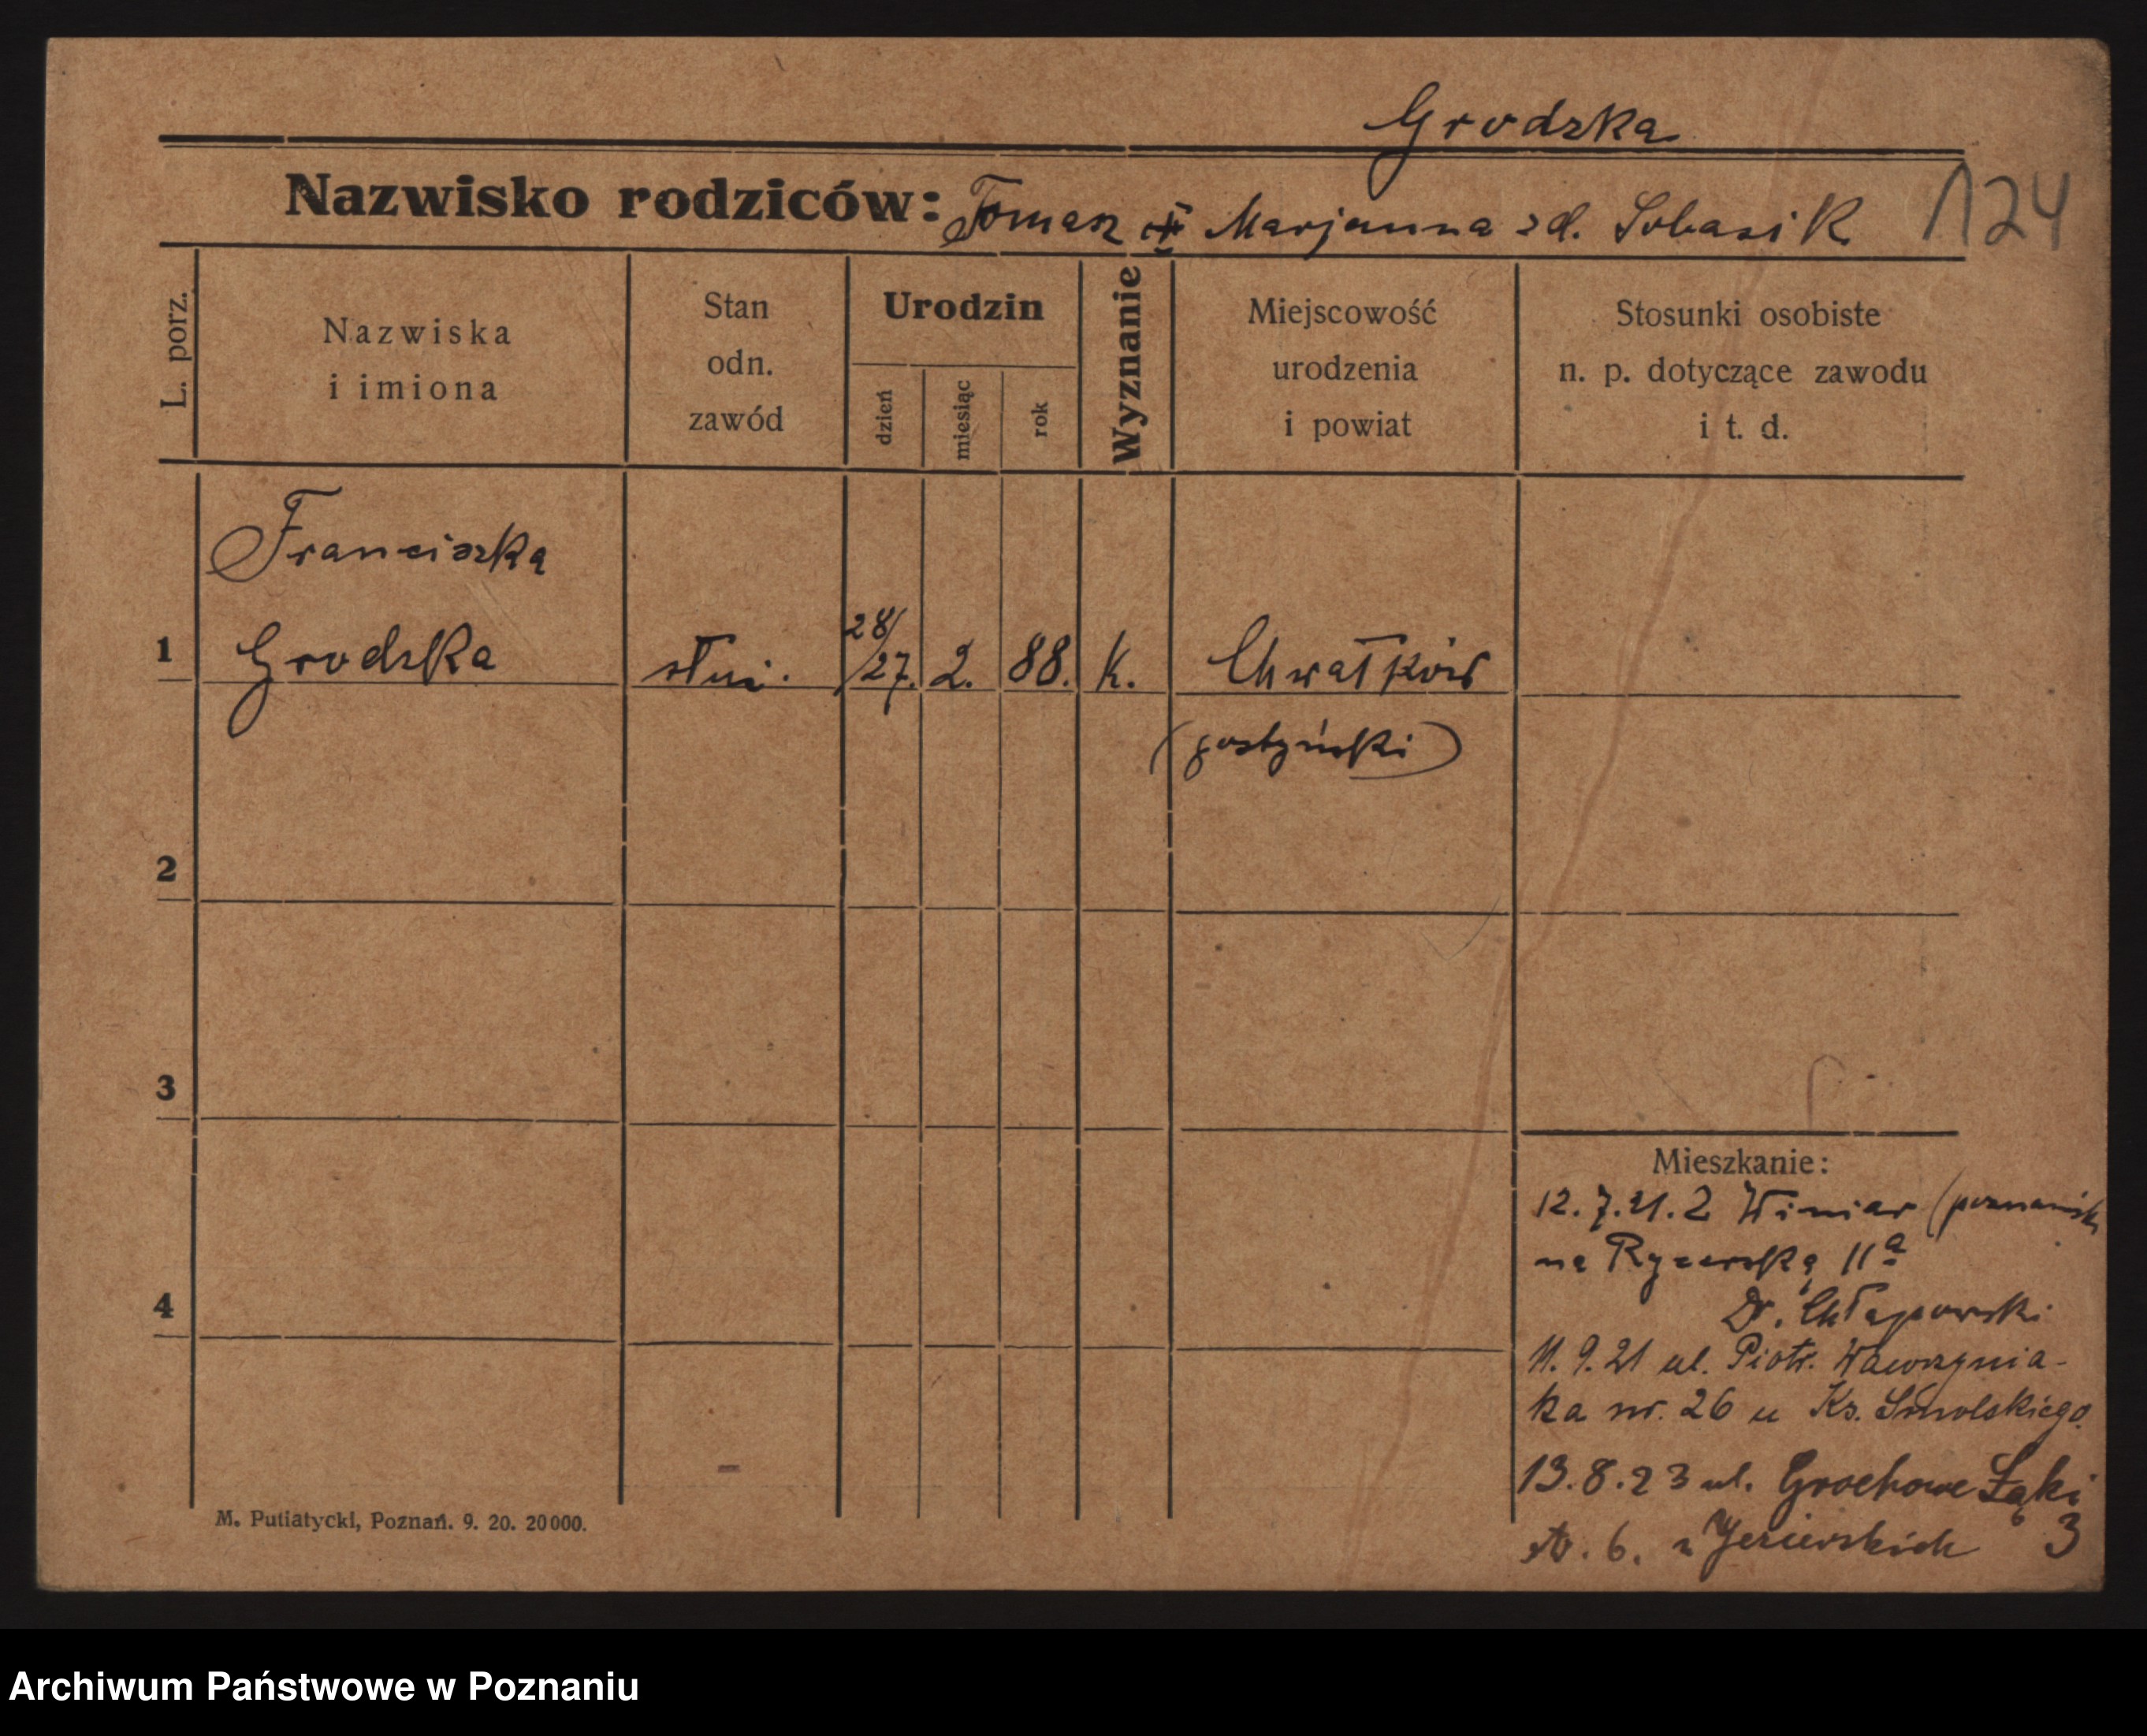 Grodzka
Nazwisko rodziców: Tomasz i Marjanna zd. Sobasik 124
L. porz.
Nazwiska
i imiona
Stan
odn.
zawód
Urodzin
dzień
miesiąc
rok
Wyznanie
Miejscowość
urodzenia
i powiat
Stosunki osobiste
n. p. dotyczące zawodu
i t. d.
Franciszka
28/
1 Grodzka służ. /27. 2. 88. K. Chwałków
(gostyński)
2
3
4
Mieszkanie:
12.7.21. z Winiar (poznańsk
na Rycerską 11a
Dr. Chłapowski
11.9.21 ul. Piotr. Wawrzynia-
ka nr. 26 u Ks. Smolskiego.
13.8.23 ul. Grochowe Łąki
6. u Jeziewskich 3
M. Putiatycki, Poznań. 9. 20. 20000.
Archiwum Państwowe w Poznaniu